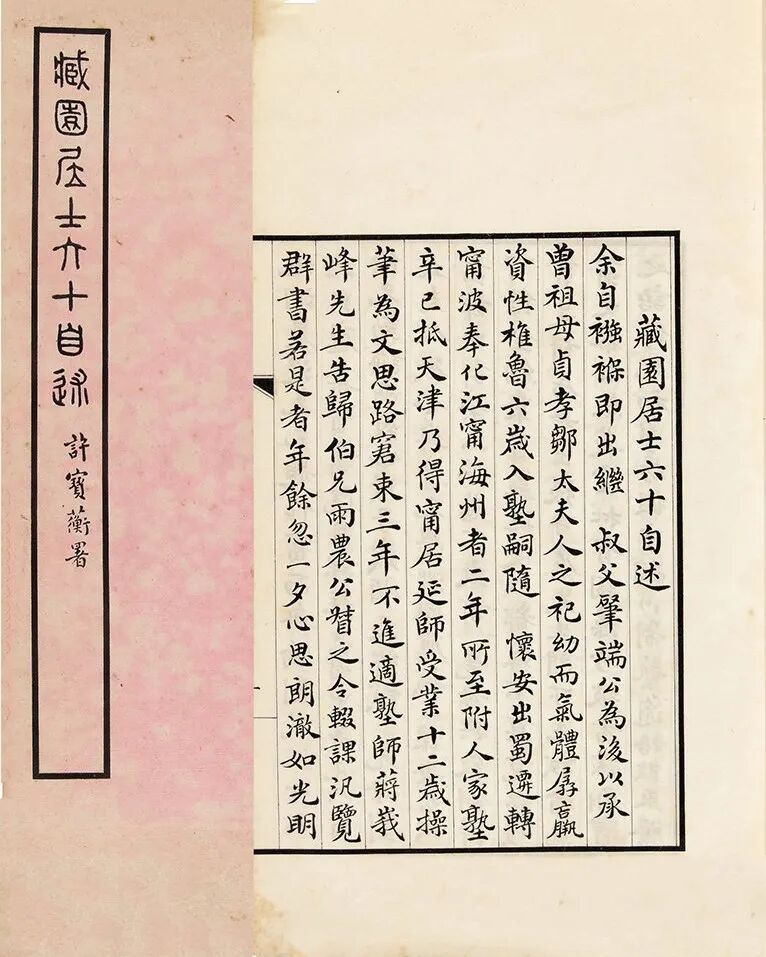 臧園居士六十自述
許寶蘅署
藏園居士六十自述
余自襁褓即出繼　叔父肇端公為後以承
曾祖母貞孝鄒太夫人之祀幼而氣體孱羸
資性椎魯六歲入塾嗣隨　懷安出蜀遷轉
甯波奉化江甯海州者二年所至附人家塾
辛巳抵天津乃得甯居延師受業十二歲操
筆為文思路窘束三年不進適塾師蔣莪
峰先生告歸伯兄雨農公督之令輟課汎覽
群書若是者年餘忽一夕心思朗澈如光明